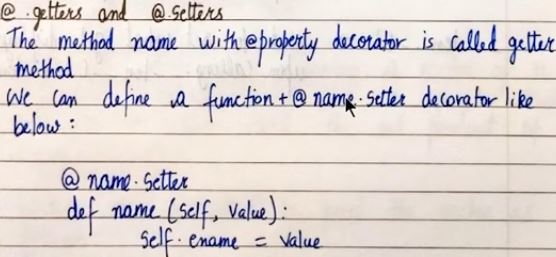 @.getters and @.setters
The method name with @property decorator is called getter
method
We can define a function + @ name.setter decorator like
below :
@ name.setter
def name (self, value):
self.ename = value